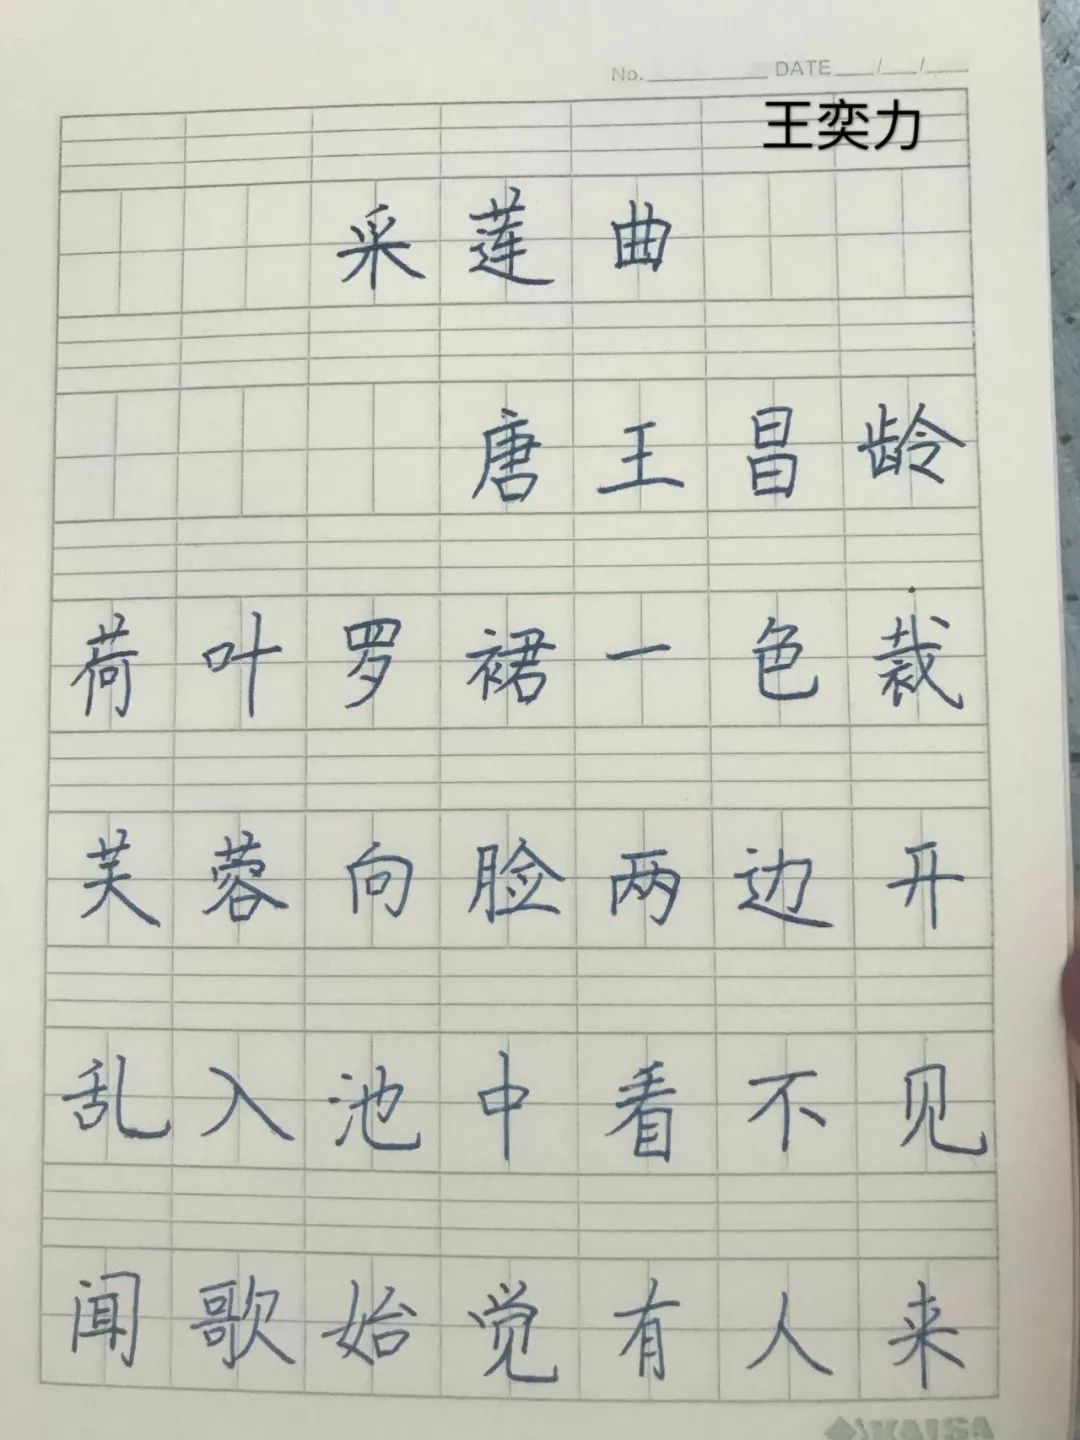 No. DATE / /
王奕力
采莲曲
唐王昌龄
荷叶罗裙一色裁
芙蓉向脸两边开
乱入池中看不见
闻歌始觉有人来
KAISA